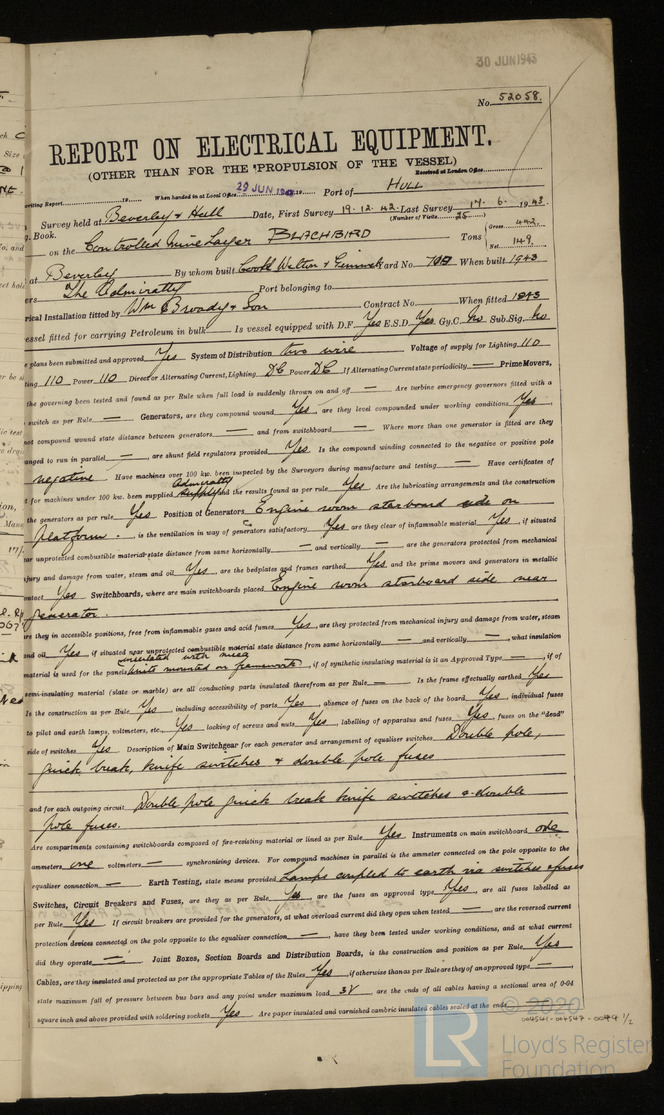 30 JUN 1943
No. 52058.
REPORT ON ELECTRICAL EQUIPMENT.
(OTHER THAN FOR THE PROPULSION OF THE VESSEL)
Received at London Office
writing Report 19 When handed in at Local Office 29 JUN 1943 19 Port of Hull
Survey held at Beverley & Hull Date, First Survey 19.12.42 Last Survey 17.6. 1943
. Book. (Number of Visits 25)
on the Controlled Mine Layer BLACKBIRD Tons { Gross 442. Net 149.
at Beverley By whom built Cook Welton & Gemmell Yard No. When built 1943
ers The Admiralty Port belonging to
rical Installation fitted by Wm Broady & Son Contract No. When fitted 1943
essel fitted for carrying Petroleum in bulk — Is vessel equipped with D.F. Yes E.S.D. Yes Gy.C. No Sub.Sig. No
plans been submitted and approved Yes System of Distribution two wire Voltage of supply for Lighting 110
ting 110 Power 110 Direct or Alternating Current, Lighting DC Power DC If Alternating Current state periodicity — Prime Movers,
the governing been tested and found as per Rule when full load is suddenly thrown on and off — Are turbine emergency governors fitted with a
switch as per Rule — Generators, are they compound wound Yes, are they level compounded under working conditions Yes,
not compound wound state distance between generators — and from switchboard — Where more than one generator is fitted are they
anged to run in parallel —, are shunt field regulators provided Yes. Is the compound winding connected to the negative or positive pole
negative Have machines over 100 kw. been inspected by the Surveyors during manufacture and testing — Have certificates of
t for machines under 100 kw. been supplied Admiralty and the results found as per rule Yes Are the lubricating arrangements and the construction
the generators as per rule Yes Position of Generators Engine room starboard side on
platform. , is the ventilation in way of generators satisfactory Yes are they clear of inflammable material Yes, if situated
ar unprotected combustible material state distance from same horizontally — and vertically —, are the generators protected from mechanical
jury and damage from water, steam and oil Yes, are the bedplates and frames earthed Yes and the prime movers and generators in metallic
ontact Yes Switchboards, where are main switchboards placed Engine room starboard side near
generator.
are they in accessible positions, free from inflammable gases and acid fumes Yes, are they protected from mechanical injury and damage from water, steam
and oil Yes, if situated near unprotected combustible material state distance from same horizontally — and vertically —, what insulation
material is used for the panels insulated with mica units mounted on framework, if of synthetic insulating material is it an Approved Type —, if of
semi-insulating material (slate or marble) are all conducting parts insulated therefrom as per Rule — Is the frame effectually earthed Yes
Is the construction as per Rule Yes, including accessibility of parts Yes, absence of fuses on the back of the board Yes, individual fuses
to pilot and earth lamps, voltmeters, etc. Yes locking of screws and nuts Yes, labelling of apparatus and fuses Yes, fuses on the "dead"
side of switches Yes Description of Main Switchgear for each generator and arrangement of equaliser switches Double pole,
quick break, knife switches & double pole fuses
and for each outgoing circuit Double pole quick break knife switches & double
pole fuses.
Are compartments containing switchboards composed of fire-resisting material or lined as per Rule Yes Instruments on main switchboard one
ammeters one voltmeters — synchronising devices. For compound machines in parallel is the ammeter connected on the pole opposite to the
equaliser connection — Earth Testing, state means provided Lamps coupled to earth via switches & fuses
Switches, Circuit Breakers and Fuses, are they as per Rule Yes, are the fuses an approved type Yes, are all fuses labelled as
per Rule Yes If circuit breakers are provided for the generators, at what overload current did they open when tested —, are the reversed current
protection devices connected on the pole opposite to the equaliser connection —, have they been tested under working conditions, and at what current
did they operate — Joint Boxes, Section Boards and Distribution Boards, is the construction and position as per Rule Yes
Cables, are they insulated and protected as per the appropriate Tables of the Rules Yes, if otherwise than as per Rule are they of an approved type —,
state maximum fall of pressure between bus bars and any point under maximum load 3V, are the ends of all cables having a sectional area of 0·04
square inch and above provided with soldering sockets Yes. Are paper insulated and varnished cambric insulated cables sealed at the ends —
© 2020
004541-004547-0049 1/2
LR
Lloyd's Register
Foundation